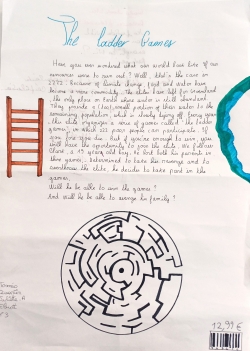 The Ladder Games
Have you ever wondered what our world would look like if our
resources were to run out? Well, that's the case in
Because of climate change, food and water have
become a rare commodity. The elites have left for
, the only place on Earth where water is still abundant.
They provide a small portion of their water to the
remaining population which is slowly dying off. Every year
the elite organizes a series of games called "the ladder
games", in which poor people can participate. If
you lose you die. But if you're enough to win, you
will have the opportunity to join the elite. We follow
a 17 years old boy, who lost both his parents in
these games. Determined to take his revenge and to
overthrow the elite, he decides to take part in the
games.
Will he be able to win the games?
And will he be able to avenge his family?
12,99 €